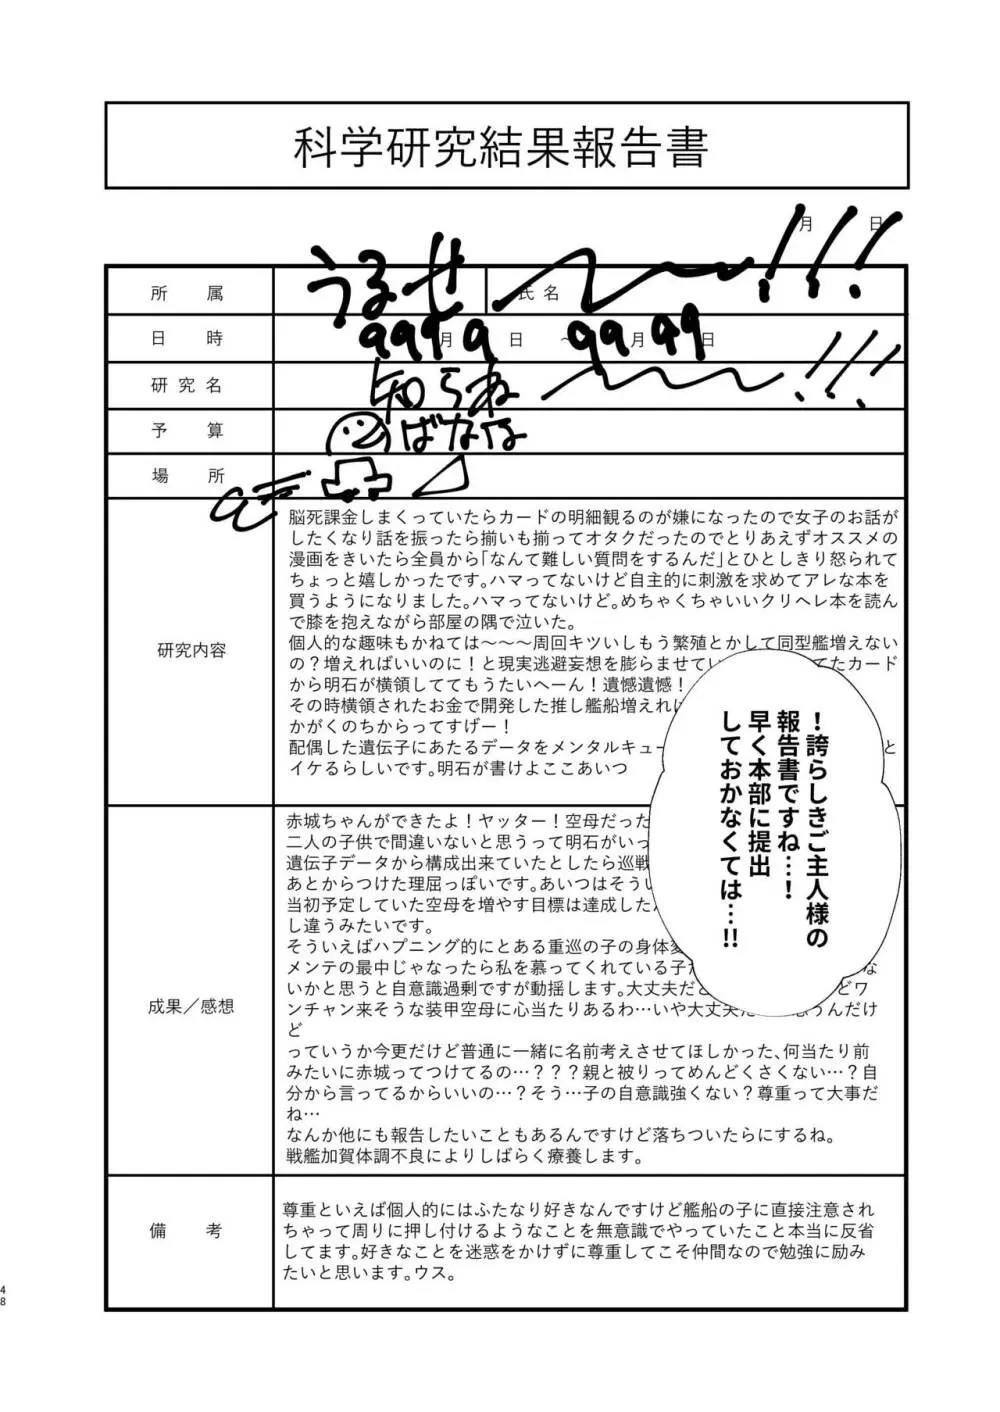 科学研究結果報告書
月 日
所 属 うるせ〜〜!!! 氏名
日 時 9999 月 日 ~ 99 月 99 日
研究名 知らね〜〜!!!
予 算 ばなな
場 所
研究内容
脳死課金しまくっていたらカードの明細観るのが嫌になったので女子のお話が
したくなり話を振ったら揃いも揃ってオタクだったのでとりあえずオススメの
漫画をきいたら全員から「なんて難しい質問をするんだ」とひとしきり怒られて
ちょっと嬉しかったです。ハマってないけど自主的に刺激を求めてアレな本を
買うようになりました。ハマってないけど。めちゃくちゃいいクリヘレ本を読ん
で膝を抱えながら部屋の隅で泣いた。
個人的な趣味もかねては〜〜〜周回キツいしもう繁殖とかして同型艦増えない
の?増えればいいのに!と現実逃避妄想を膨らませてい てたカード
から明石が横領しててもうたいへーん!遺憾遺憾!
その時横領されたお金で開発した推し艦船増えれ
かがくのちからってすげー!
配偶した遺伝子にあたるデータをメンタルキュー と
イケるらしいです。明石が書けよここあいつ
!誇らしきご主人様の
報告書ですね…!
早く本部に提出
しておかなくては…!!
成果/感想
赤城ちゃんができたよ!ヤッター!空母だった
二人の子供で間違いないと思うって明石がいっ
遺伝子データから構成出来ていたとしたら巡戦
あとからつけた理屈っぽいです。あいつはそうい
当初予定していた空母を増やす目標は達成した
し違うみたいです。
そういえばハプニング的にとある重巡の子の身体変
メンテの最中じゃなったら私を慕ってくれている子 な
いかと思うと自意識過剰ですが動揺します。大丈夫だと どワ
ンチャン来そうな装甲空母に心当たりあるわ…いや大丈夫だ 思うんだけ
ど
っていうか今更だけど普通に一緒に名前考えさせてほしかった、何当たり前
みたいに赤城ってつけてるの…???親と被りってめんどくさくない…?自
分から言ってるからいいの…?そう…子の自意識強くない?尊重って大事だ
ね…
なんか他にも報告したいこともあるんですけど落ちついたらにするね。
戦艦加賀体調不良によりしばらく療養します。
備 考
尊重といえば個人的にはふたなり好きなんですけど艦船の子に直接注意され
ちゃって周りに押し付けるようなことを無意識でやっていたこと本当に反省
してます。好きなことを迷惑をかけずに尊重してこそ仲間なので勉強に励み
たいと思います。ウス。
48